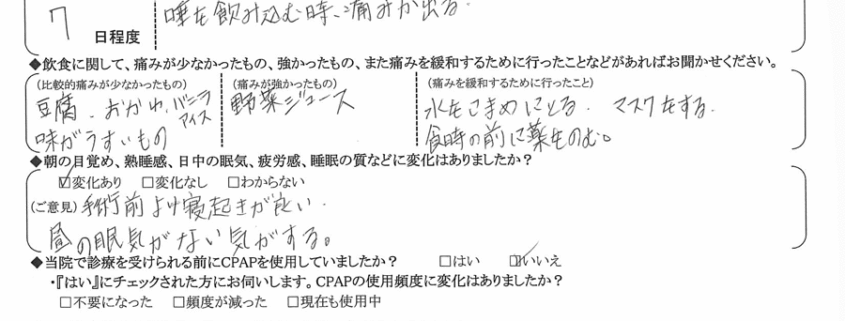 7 日程度 唾を飲み込む時、痛みが出る。
◆飲食に関して、痛みが少なかったもの、強かったもの、また痛みを緩和するために行ったことなどがあればお聞かせください。
(比較的痛みが少なかったもの) (痛みが強かったもの) (痛みを緩和するために行ったこと)
豆腐、おかゆ、バニラアイス 野菜ジュース 水をこまめにとる。 マスクをする。
味がうすいもの 食時の前に薬をのむ。
◆朝の目覚め、熟睡感、日中の眠気、疲労感、睡眠の質などに変化はありましたか?
☑変化あり □変化なし □わからない
(ご意見) 手術前より寝起きが良い。
昼の眠気がない気がする。
◆当院で診療を受けられる前にCPAPを使用していましたか? □はい ☑いいえ
・『はい』にチェックされた方にお伺いします。CPAPの使用頻度に変化はありましたか?
□不要になった □頻度が減った □現在も使用中